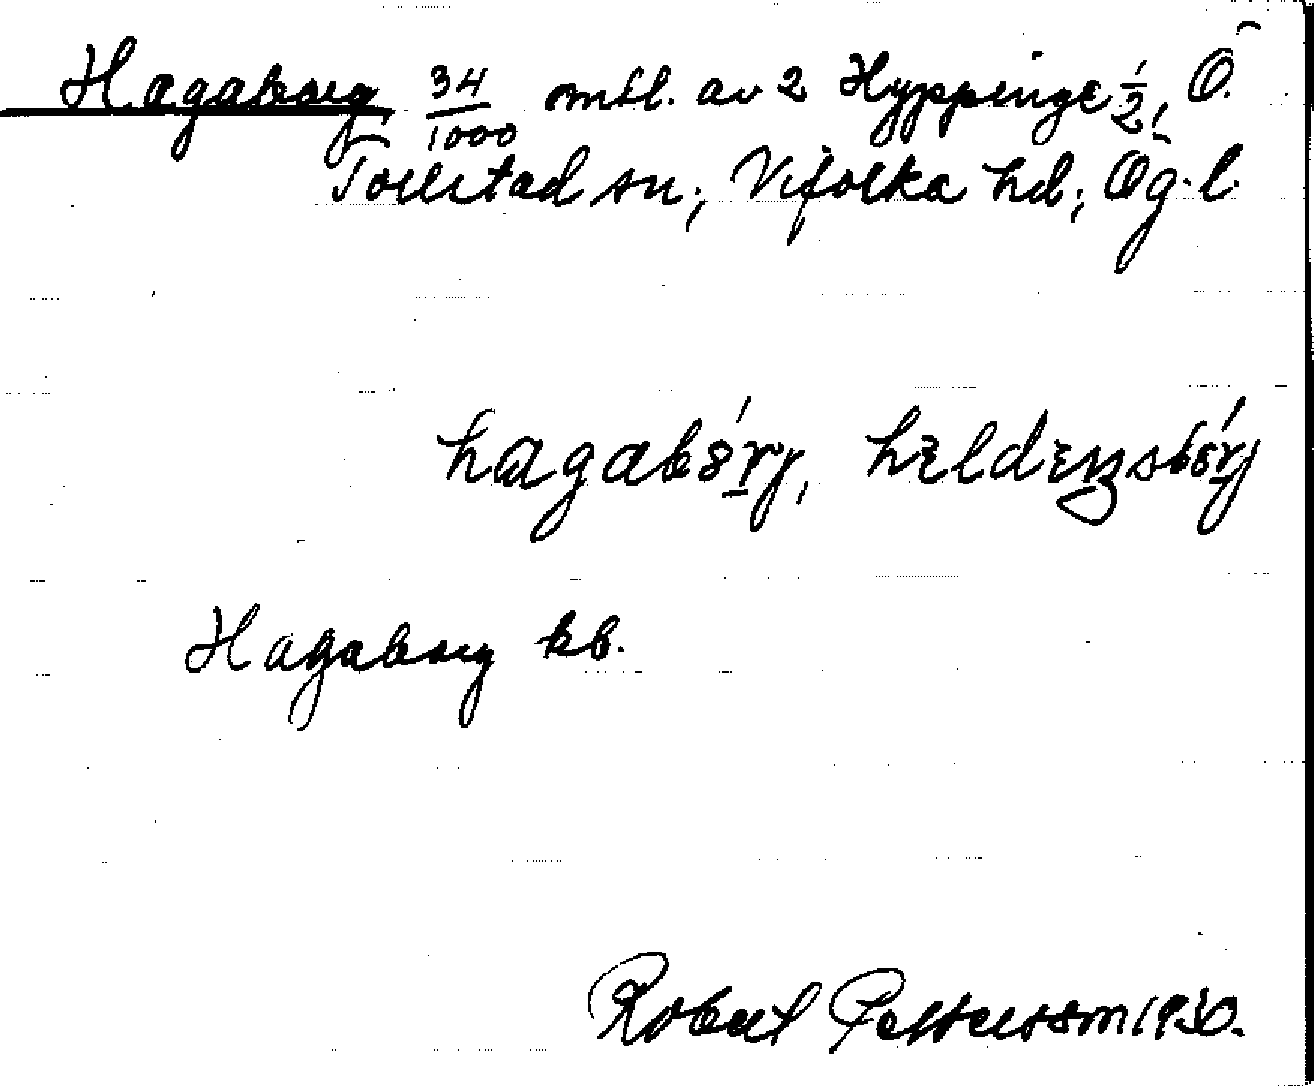 Hagaborg, 34/1000 mtl. av 2 Hyppinge 1/2, Ö.
Tollstad sn; Vifolka hd; Ög. l.
hagabórj, heldeŋsbórj
Hagaborg kb.
Robert Pettersson 1930.